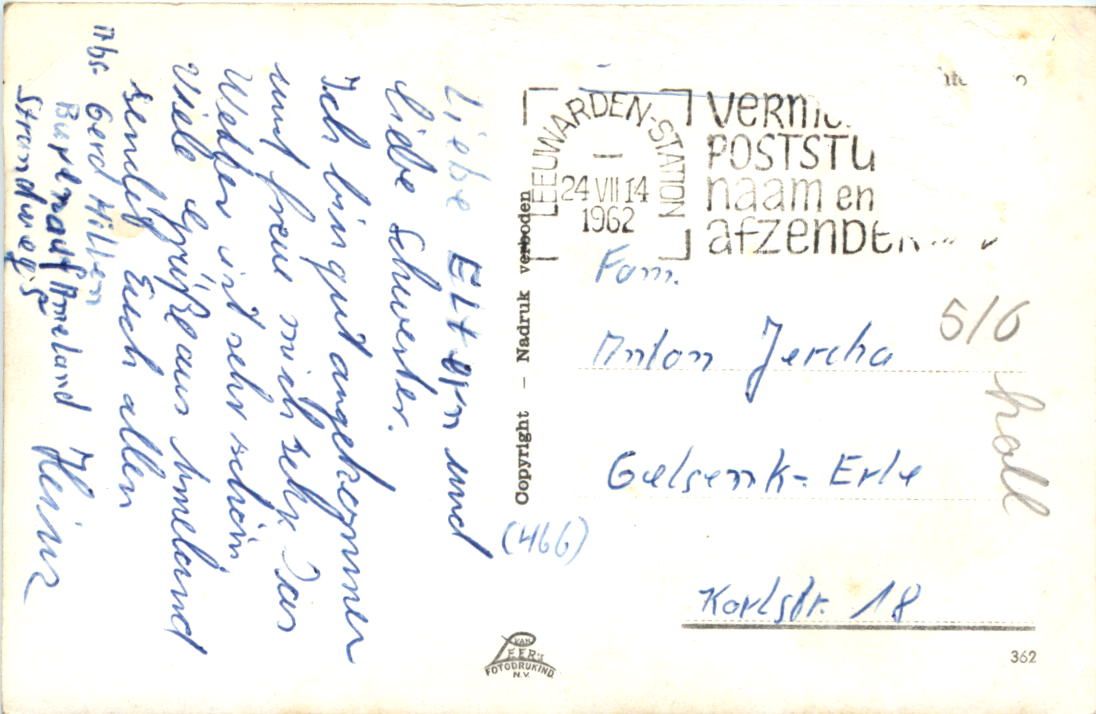 Liebe Eltern und
liebe Schwester.
Ich bin gut angekommen
und freue mich sehr. Das
Wetter ist sehr schön.
Viele Grüße aus Ameland
sendet Euch allen
Heinz
Abs. Gerd Hilben
Buren auf Ameland
Strandweg 5
Copyright – Nadruk verboden
LEEUWARDEN-STATION
24 VII 14
1962
POSTSTU
naam en
afzender
Fam.
Anton Jercha
Gelsenk-Erle
(466)
Karlstr. 18
5/6
holl
VAN
LEER'S
FOTODRUKIND.
N.V.
362